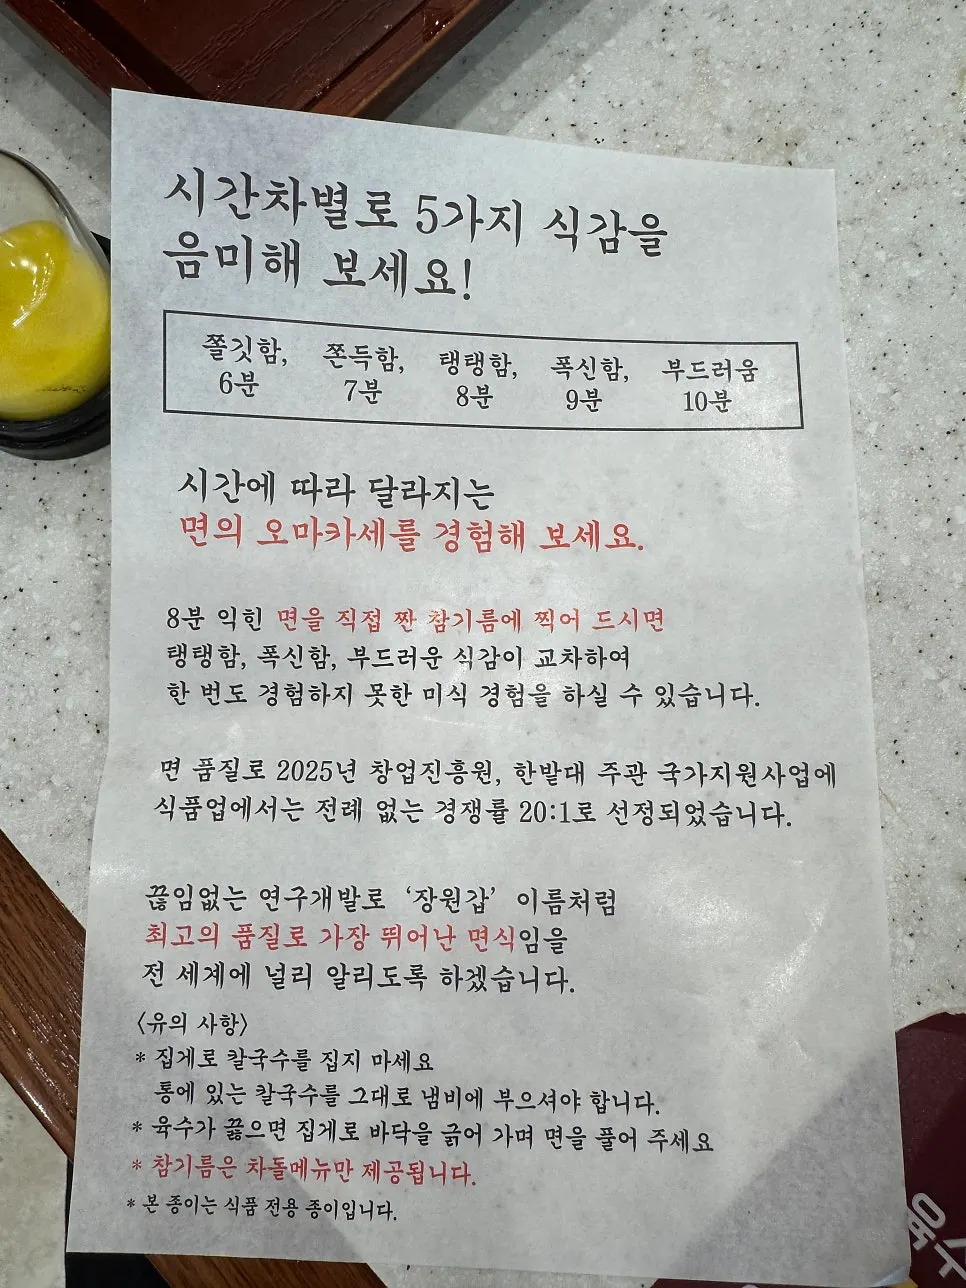 시간차별로 5가지 식감을
음미해 보세요!
쫄깃함, 쫀득함, 탱탱함, 폭신함, 부드러움
6분 7분 8분 9분 10분
시간에 따라 달라지는
면의 오마카세를 경험해 보세요.
8분 익힌 면을 직접 짠 참기름에 찍어 드시면
탱탱함, 폭신함, 부드러운 식감이 교차하여
한 번도 경험하지 못한 미식 경험을 하실 수 있습니다.
면 품질로 2025년 창업진흥원, 한밭대 주관 국가지원사업에
식품업에서는 전례 없는 경쟁률 20:1로 선정되었습니다.
끊임없는 연구개발로 ‘장원갑’ 이름처럼
최고의 품질로 가장 뛰어난 면식임을
전 세계에 널리 알리도록 하겠습니다.
〈유의 사항〉
* 집게로 칼국수를 집지 마세요
통에 있는 칼국수를 그대로 냄비에 부으셔야 합니다.
* 육수가 끓으면 집게로 바닥을 긁어 가며 면을 풀어 주세요
* 참기름은 차돌메뉴만 제공됩니다.
* 본 종이는 식품 전용 종이입니다.